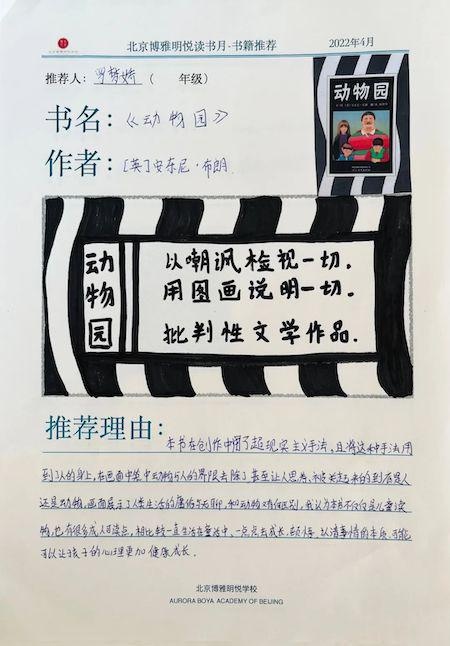 北京博雅明悦读书月·书籍推荐 2022年4月
推荐人: (  年级)
书名:《动物园》
作者:[英]安东尼·布朗
动物园
动物园
以嘲讽检视一切.
用图画说明一切.
批判性文学作品.
推荐理由: 本书在创作中用了超现实主义手法,且将这种手法用
到了人的身上,在画面中把动物与人的界限去除了甚至让人思考,被关起来的到底是人
还是动物,画面展示了人类生活的庸俗与无聊,和动物又有何区别,我认为本书不仅仅是儿童读
物,也有很多成人可读点,相比较一直生活在童话中,一点点去成长,领悟,认清事情的本质,可能
可以让孩子的心理更加健康成长.
北京博雅明悦学校
AURORA BOYA ACADEMY OF BEIJING